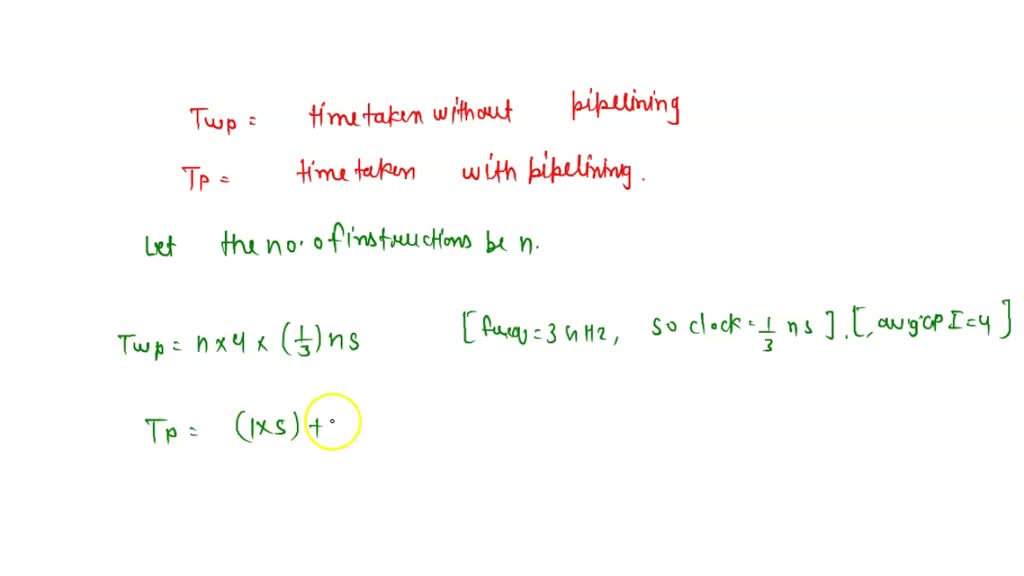 Twp = time taken without pipelining
Tp = time taken with pipelining.
Let the no. of instructions be n.
Twp = n x 4 x (1/3) ns [freq = 3 GHz, so clock = 1/3 ns]. [, avg CPI = 4]
Tp = (1x5) +